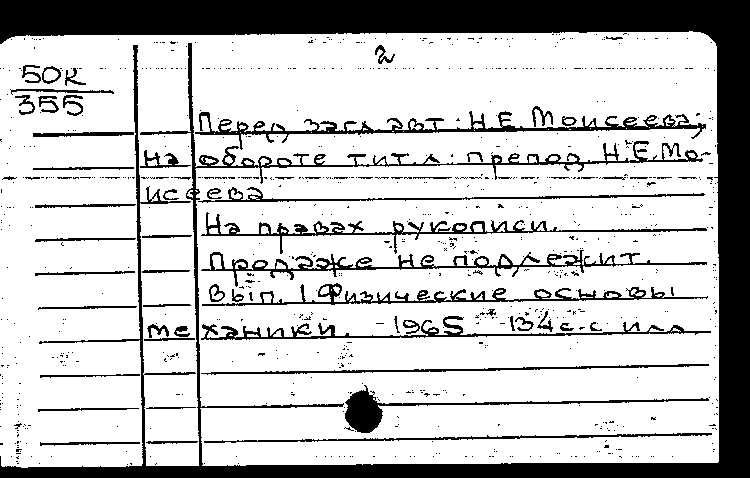 2
50К
355
Перед загл авт: Н.Е. Моисеева;
на обороте тит.л: препод. Н.Е.Мо-
исеева
На правах рукописи.
Продаже не подлежит.
Вып. 1.Физические основы
механики. 1965 134с. с илл